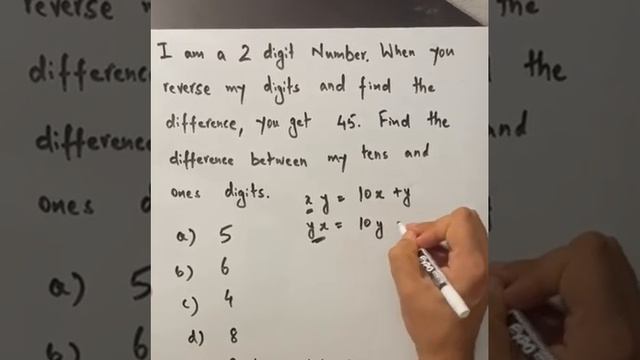 I am a 2 digit Number. When you
reverse my digits and find the
difference, you get 45. Find the
difference between my tens and
ones digits.
x y = 10x + y
y x = 10 y
a) 5
b) 6
c) 4
d) 8